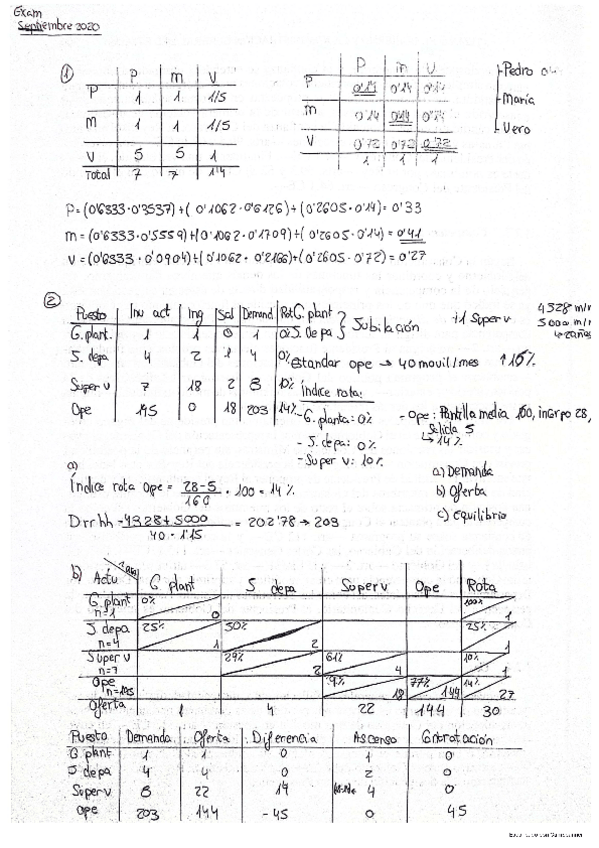 Exam
Septiembre 2020
①
P m V
P 1 1 1/5
m 1 1 1/5
V 5 5 1
Total 7 7 1'4
P m V
P 0'14 0'14 0'14
m 0'14 0'14 0'14
V 0'72 0'72 0'72
1 1 1
Pedro
María
Vero
P = (0'6333 · 0'3537) + (0'1062 · 0'6126) + (0'2605 · 0'14) = 0'33
m = (0'6333 · 0'5559) + (0'1062 · 0'1709) + (0'2605 · 0'14) = 0'41
V = (0'6333 · 0'0904) + (0'1062 · 0'2166) + (0'2605 · 0'72) = 0'27
②
Puesto Inv act Ing Sal Demand Rot
G. plant. 1 1 0 1 0%
S. depa 4 2 1 4 0%
Superv 7 18 2 8 10%
Ope 195 0 18 203 14%
G. plant
S. depa } Jubilación
+1 Superv
4328 m/
5000 m/
Estandar ope → 40 movil/mes ↑15%
Índice rota:
- G. planta: 0%
- S. depa: 0%
- Superv: 10%
- Ope: Plantilla media 160, 28,
Salida 5
↳ 14%
a)
Índice rota ope = 28-5 / 160 · 100 = 14%
Drrhh 4328+5000 / 40 · 1'15 = 202'78 → 203
a) Demanda
b) Oferta
c) Equilibrio
b) Actu G plant S depa Superv Ope Rota
G. plant n=1 0% 0 100% 1
S depa n=4 25% 1 50% 2 25% 1
Superv n=7 29% 2 61% 4 10% 1
Ope 9% 18 77% 144 14% 27
Oferta 1 4 22 144 30
Puesto Demanda Oferta Diferencia Ascenso Contratación
G plant 1 1 0 1 0
S depa 4 4 0 2 0
Superv 8 22 14 4 0
ope 203 144 -45 0 45